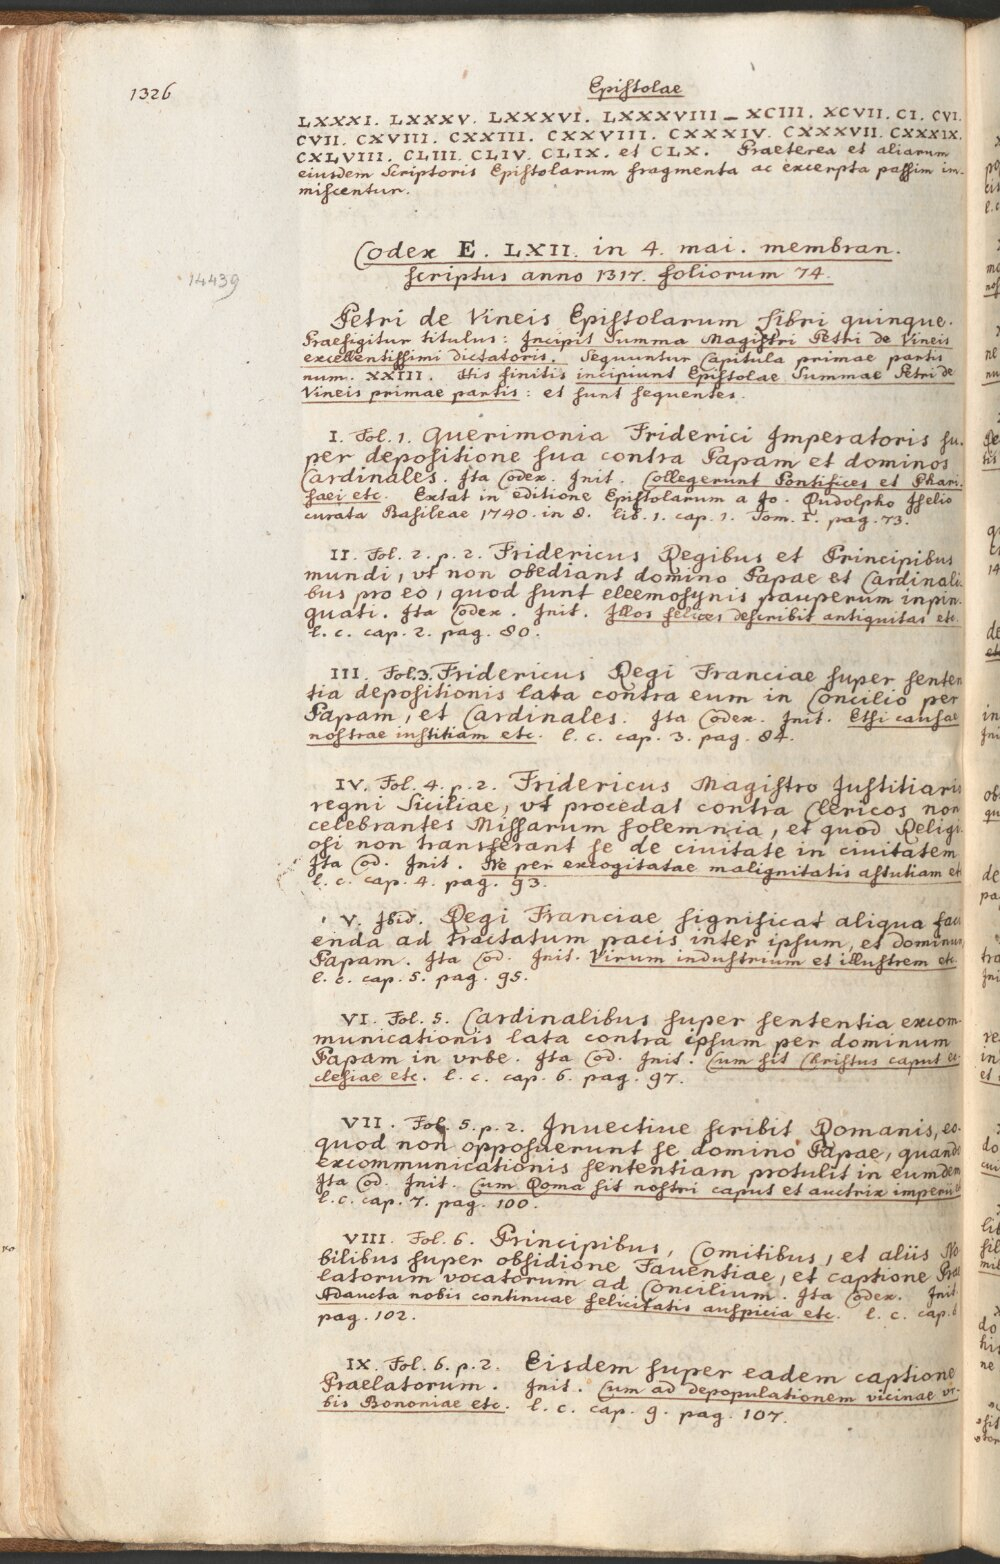 1326
Epistolae
LXXXI. LXXXV. LXXXVI. LXXXVIII – XCIII. XCVII. CI. CVI.
CVII. CXVIII. CXXIII. CXXVIII. CXXXIV. CXXXVII. CXXXIX.
CXLVIII. CLIII. CLIV. CLIX. et CLX. Praeterea et aliarum
eiusdem Scriptoris Epistolarum fragmenta ac excerpta passim im-
miscentur.
Codex E. LXII. in 4. mai. membran.
scriptus anno 1317. foliorum 74.
14439
Petri de Vineis Epistolarum Libri quinque.
Praefigitur titulus: Incipit Summa Magistri Petri de Vineis
excellentissimi dictatoris. Sequuntur Capitula primae partis
num. XXIII. His finitis incipiunt Epistolae Summae Petri de
Vineis primae partis: et sunt sequentes.
I. Fol. 1. Querimonia Friderici Imperatoris su-
per depositione sua contra Papam et dominos
Cardinales. Ita Codex. Init. Collegerunt Pontifices et Phari-
saei etc. Extat in editione Epistolarum a Jo. Rudolpho Iselio
curata Basileae 1740. in 8. lib. 1. cap. 1. Tom. I. pag. 73.
II. Fol. 2. p. 2. Fridericus Regibus et Principibus
mundi, vt non obediant domino Papae et Cardinali-
bus pro eo, quod sunt eleemosynis pauperum inpin-
guati. Ita Codex. Init. Illos felices describit antiquitas etc.
l. c. cap. 2. pag. 80.
III. Fol. 3. Fridericus Regi Franciae super senten
tia depositionis lata contra eum in Concilio per
Papam, et Cardinales. Ita Codex. Init. Etsi causae
nostrae iustitiam etc. l. c. cap. 3. pag. 84.
IV. Fol. 4. p. 2. Fridericus Magistro Justitiario
regni Siciliae, vt procedat contra Clericos non
celebrantes Missarum solemnia, et quod Religi-
osi non transferant se de ciuitate in ciuitatem
Ita Cod. Init. Ne per excogitatae malignitatis astutiam et
l. c. cap. 4. pag. 93.
V. Ibid. Regi Franciae significat aliqua faci
enda ad tractatum pacis inter ipsum, et dominum
Papam. Ita Cod. Init. Virum industrium et illustrem etc.
l. c. cap. 5. pag. 95.
VI. Fol. 5. Cardinalibus super sententia excom-
municationis lata contra ipsum per dominum
Papam in vrbe. Ita Cod. Init. Cum sit Christus caput ec-
clesiae etc. l. c. cap. 6. pag. 97.
VII. Fol. 5. p. 2. Inuectiue scribit Romanis, eo-
quod non opposuerunt se domino Papae, quando
excommunicationis sententiam protulit in eumdem
Ita Cod. Init. Cum Roma sit nostri caput et auctrix imperii
l. c. cap. 7. pag. 100.
VIII. Fol. 6. Principibus, Comitibus, et aliis No
bilibus super obsidione Fauentiae, et captione Prae
latorum vocatorum ad Concilium. Ita Codex. Init.
Adaucta nobis continuae felicitatis auspicia etc. l. c. cap. 8
pag. 102.
IX. Fol. 6. p. 2. Eisdem super eadem captione
Praelatorum. Init. Cum ad depopulationem vicinae vr-
bis Bononiae etc. l. c. cap. 9. pag. 107.